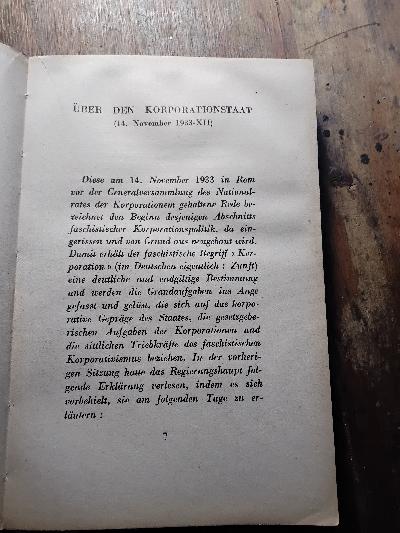 ÜBER DEN KORPORATIONSTAAT
(14. November 1933-XII)
Diese am 14. November 1933 in Rom
vor der Generalversammlung des National-
rates der Korporationen gehaltene Rede be-
zeichnet den Beginn desjenigen Abschnitts
faschistischer Korporationspolitik, da ein-
gerissen und von Grund aus neugebaut wird.
Damit erhält der faschistische Begriff « Kor-
poration » (im Deutschen eigentlich : Zunft)
eine deutliche und endgiltige Bestimmung
und werden die Grundaufgaben ins Auge
gefasst und gelöst, die sich auf das korpo-
rative Gepräge des Staates, die gesetzgebe-
rischen Aufgaben der Korporationen und
die sittlichen Triebkräfte des faschistischen
Korporativismus beziehen. In der vorheri-
gen Sitzung hatte das Regierungshaupt fol-
gende Erklärung verlesen, indem es sich
vorbehielt, sie am folgenden Tage zu er-
läutern :
7